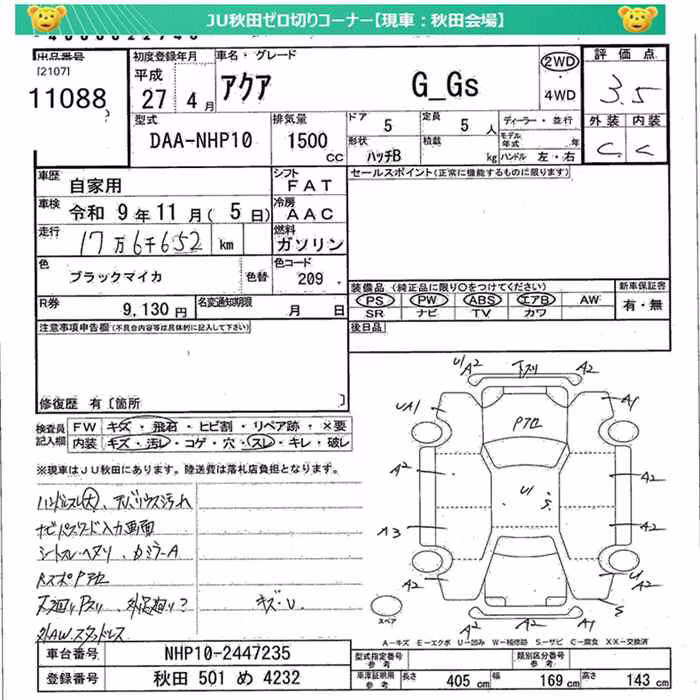 JU秋田ゼロ切りコーナー【現車：秋田会場】
出品番号
[2107]
11088
初度登録年月
平成
27 4月
車名・グレード
アクア G_Gs
2WD
4WD
評価点
3.5
外装 内装
C C
型式
DAA-NHP10
排気量
1500
CC
ドア
5
定員
5 人
形状
ハッチB
積載
kg
ディーラー・並行
モデル年式 年
ハンドル 左・右
車歴
自家用
車検
令和 9年11月(5日)
走行
17万6千652 km
シフト
FAT
冷房
AAC
燃料
ガソリン
色
ブラックマイカ
色替
色コード
209
R券
9,130円
名変通知期限
月 日
セールスポイント(正常に機能するものに限ります)
装備品(純正品に限り○をつけてください)
PS PW ABS エアB AW
SR ナビ TV カワ
新車保証書
有・無
後日品
注意事項申告欄(不具合内容等は具体的に記入して下さい)
修復歴 有[箇所 ]
検査員記入欄
FW キズ・飛石・ヒビ割・リペア跡・×要
内装 キズ・汚レ・コゲ・穴・スレ・キレ・破レ
※現車はJU秋田にあります。陸送費は落札店負担となります。
ハンドルスレ大、
ナビパスワード入力画面
シートスレ・ヘタリ、カメラ-A
キズ・U
外AWスタッドレス
U/A2 A2
UA1 A1
Pアロ
A2 A2
U1 S
A3 A2
A2 U/A2
A2 A1 S
スペア
A-キズ E-エクボ U-凹み W-補修跡 S-サビ C-腐食 XX-交換済
車台番号
NHP10-2447235
登録番号
秋田 501 め 4232
型式指定番号
参考
類別区分番号
参考
車庫証明用
参考
長さ 405 cm 幅 169 cm 高さ 143 cm